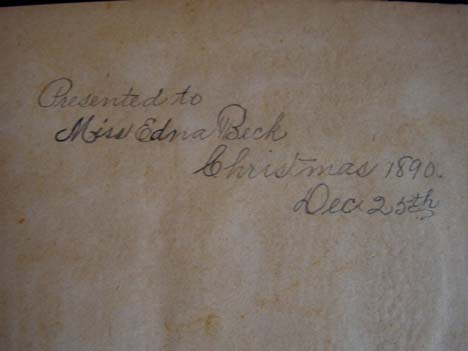 Presented to
Miss Edna Beck
Christmas 1890.
Dec 25th